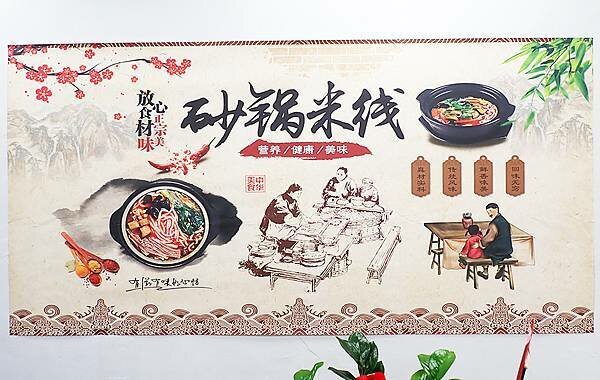 放心食材
正宗美味
砂锅米线
营养/健康/美味
中华美食
真材实料
传统风味
鲜香味美
回味无穷